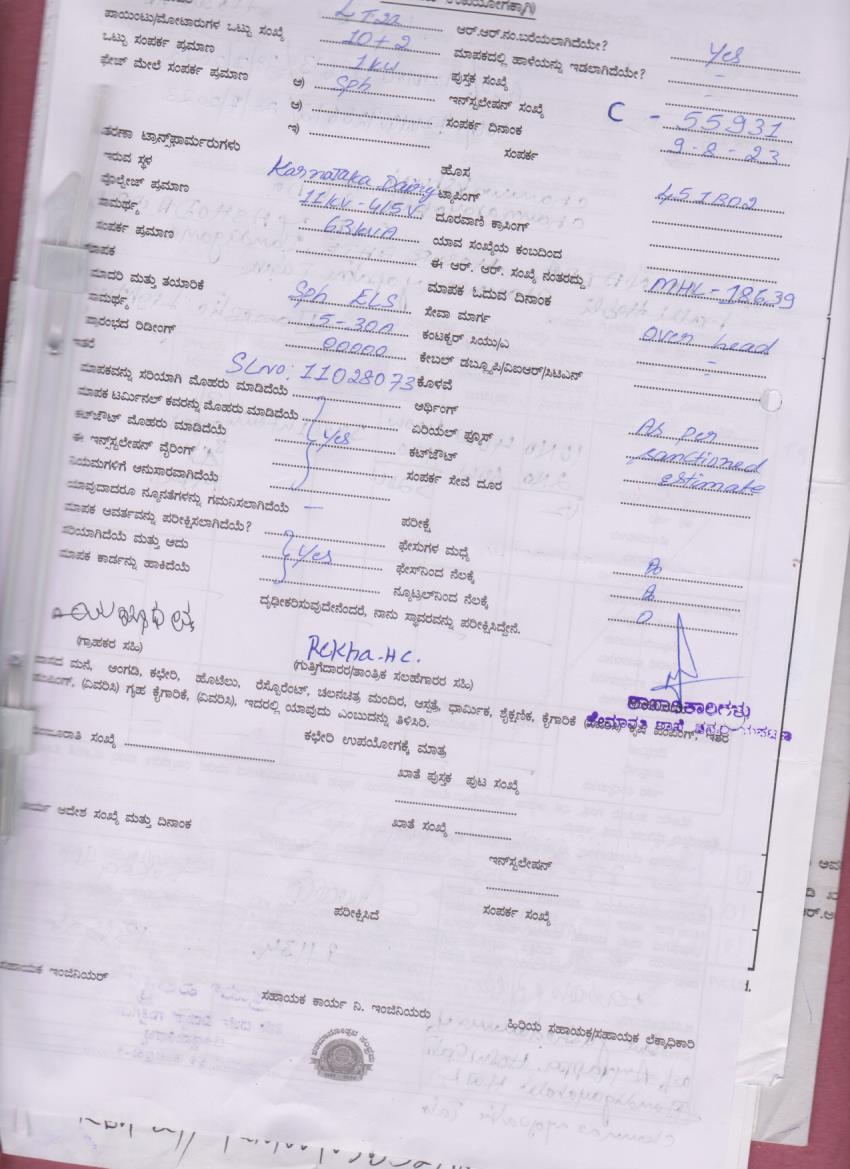 ಉಪಯೋಗಕ್ಕಾಗಿ)
ಪಾಯಿಂಟು/ಮೋಟಾರುಗಳ ಒಟ್ಟು ಸಂಖ್ಯೆ 10+2 ಆರ್.ಆರ್.ನಂ.ಬರೆಯಲಾಗಿದೆಯೇ? Yes
ಒಟ್ಟು ಸಂಪರ್ಕ ಪ್ರಮಾಣ 1kw ಮಾಪಕದಲ್ಲಿ ಹಾಳೆಯನ್ನು ಇಡಲಾಗಿದೆಯೇ? -
ಫೇಜ್ ಮೇಲೆ ಸಂಪರ್ಕ ಪ್ರಮಾಣ ಅ) Sph ಪುಸ್ತಕ ಸಂಖ್ಯೆ -
ಆ) ಇನ್‌ಸ್ಟಲೇಷನ್ ಸಂಖ್ಯೆ C - 55931
ಇ) ಸಂಪರ್ಕ ದಿನಾಂಕ 9-8-23
ತರಣಾ ಟ್ರಾನ್ಸ್‌ಫಾರ್ಮರುಗಳು ಸಂಪರ್ಕ
ಇರುವ ಸ್ಥಳ Karnataka Dairy ಹೊಸ
ವೋಲ್ಟೇಜ್ ಪ್ರಮಾಣ 11kV-415V ಟ್ಯಾಪಿಂಗ್
ಸಾಮರ್ಥ್ಯ 63kVA ದೂರವಾಣಿ ಕ್ರಾಸಿಂಗ್
ಸಂಪರ್ಕ ಪ್ರಮಾಣ ಯಾವ ಸಂಖ್ಯೆಯ ಕಂಬದಿಂದ
ಮಾಪಕ ಈ ಆರ್. ಆರ್. ಸಂಖ್ಯೆ ನಂತರದ್ದು MHL-18639
ಮಾದರಿ ಮತ್ತು ತಯಾರಿಕೆ Sph ELS ಮಾಪಕ ಓದುವ ದಿನಾಂಕ
ಸಾಮರ್ಥ್ಯ 5-30A ಸೇವಾ ಮಾರ್ಗ Over head
ಪ್ರಾರಂಭದ ರಿಡೀಂಗ್ 00000 ಕಂಟಕ್ಟರ್ ಸಿಯು/ಎ -
ಇತರೆ SLno: 11028073 ಕೇಬಲ್ ಡಬ್ಲ್ಯೂಪಿ/ವಿಐಆರ್/ಸಿಟಿಎಸ್
ಮಾಪಕವನ್ನು ಸರಿಯಾಗಿ ಮೊಹರು ಮಾಡಿದೆಯೆ ಕೊಳವೆ
ಮಾಪಕ ಟರ್ಮಿನಲ್ ಕವರನ್ನು ಮೊಹರು ಮಾಡಿದೆಯೆ ಅರ್ಥಿಂಗ್ As per
ಕಟ್‌ಔಟ್ ಮೊಹರು ಮಾಡಿದೆಯೆ Yes ಏರಿಯಲ್ ಫ್ಯೂಸ್ sanctioned
ಈ ಇನ್‌ಸ್ಟಲೇಷನ್ ವೈರಿಂಗ್ ಕಟ್‌ಔಟ್ estimate
ನಿಯಮಗಳಿಗೆ ಅನುಸಾರವಾಗಿದೆಯೆ ಸಂಪರ್ಕ ಸೇವೆ ದೂರ
ಯಾವುದಾದರೂ ನ್ಯೂನತೆಗಳನ್ನು ಗಮನಿಸಲಾಗಿದೆಯೆ - ಪರೀಕ್ಷೆ
ಮಾಪಕ ಆವರ್ತವನ್ನು ಪರೀಕ್ಷಿಸಲಾಗಿದೆಯೆ? ಫೇಸುಗಳ ಮಧ್ಯೆ
ಸರಿಯಾಗಿದೆಯೆ ಮತ್ತು ಅದು Yes ಫೇಸ್‌ನಿಂದ ನೆಲಕ್ಕೆ
ಮಾಪಕ ಕಾರ್ಡನ್ನು ಹಾಕಿದೆಯೆ ನ್ಯೂಟ್ರಲ್‌ನಿಂದ ನೆಲಕ್ಕೆ 0
ದೃಢೀಕರಿಸುವುದೇನೆಂದರೆ, ನಾನು ಸ್ಥಾವರವನ್ನು ಪರೀಕ್ಷಿಸಿದ್ದೇನೆ.
Rekha-H C.
(ಗ್ರಾಹಕರ ಸಹಿ) (ಗುತ್ತಿಗೆದಾರರ/ತಾಂತ್ರಿಕ ಸಲಹೆಗಾರರ ಸಹಿ)
ಶಾಖಾಧಿಕಾರಿಗಳು
ವಾಸದ ಮನೆ, ಅಂಗಡಿ, ಕಛೇರಿ, ಹೊಟೆಲು, ರೆಸ್ಟೊರೆಂಟ್, ಚಲನಚಿತ್ರ ಮಂದಿರ, ಆಸ್ಪತ್ರೆ, ಧಾರ್ಮಿಕ, ಶೈಕ್ಷಣಿಕ, ಕೈಗಾರಿಕೆ (ವಿವರಿಸಿ) ಕೃಷಿ ಪಂಪಿಂಗ್, ಇತರ
ಪಂಪಿಂಗ್, (ವಿವರಿಸಿ) ಗೃಹ ಕೈಗಾರಿಕೆ, (ವಿವರಿಸಿ), ಇದರಲ್ಲಿ ಯಾವುದು ಎಂಬುದನ್ನು ತಿಳಿಸಿರಿ.
ಕಛೇರಿ ಉಪಯೋಗಕ್ಕೆ ಮಾತ್ರ
ಸಂಖ್ಯೆ ಖಾತೆ ಪುಸ್ತಕ ಪುಟ ಸಂಖ್ಯೆ
ಕಾರ್ಯ ಆದೇಶ ಸಂಖ್ಯೆ ಮತ್ತು ದಿನಾಂಕ ಖಾತೆ ಸಂಖ್ಯೆ
ಇನ್‌ಸ್ಟಲೇಷನ್
ಪರೀಕ್ಷಿಸಿದೆ ಸಂಪರ್ಕ ಸಂಖ್ಯೆ
ಸಹಾಯಕ ಇಂಜಿನಿಯರ್ ಸಹಾಯಕ ಕಾರ್ಯ ನಿ. ಇಂಜಿನಿಯರು ಹಿರಿಯ ಸಹಾಯಕ/ಸಹಾಯಕ ಲೆಕ್ಕಾಧಿಕಾರಿ